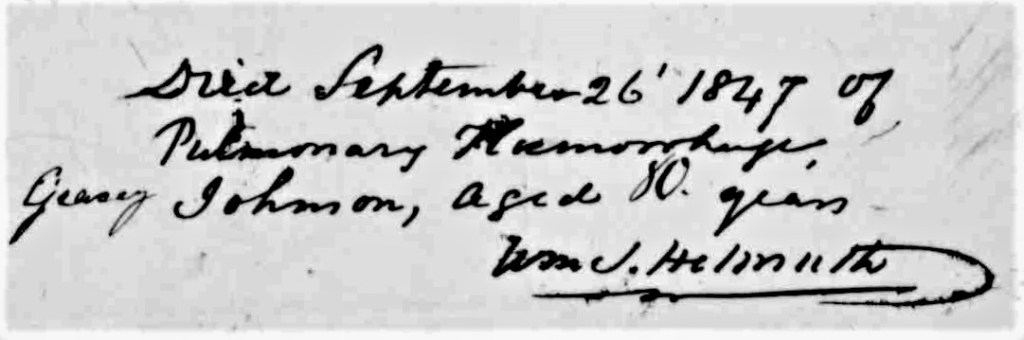 Died September 26' 1847 of
Pulmonary Hœmorrhage,
Geasey Johnson, aged 80. years
Wm J. Helmuth